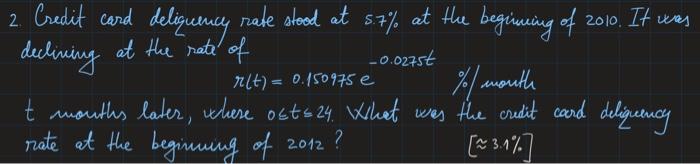 2. Credit card deliquency rate stood at 5.7% at the beginning of 2010. It was
declining at the rate of
r(t) = 0.150975 e^-0.0275t %/month
t months later, where 0≤t≤24. What was the credit card deliquency
rate at the beginning of 2012? [≈ 3.1%]